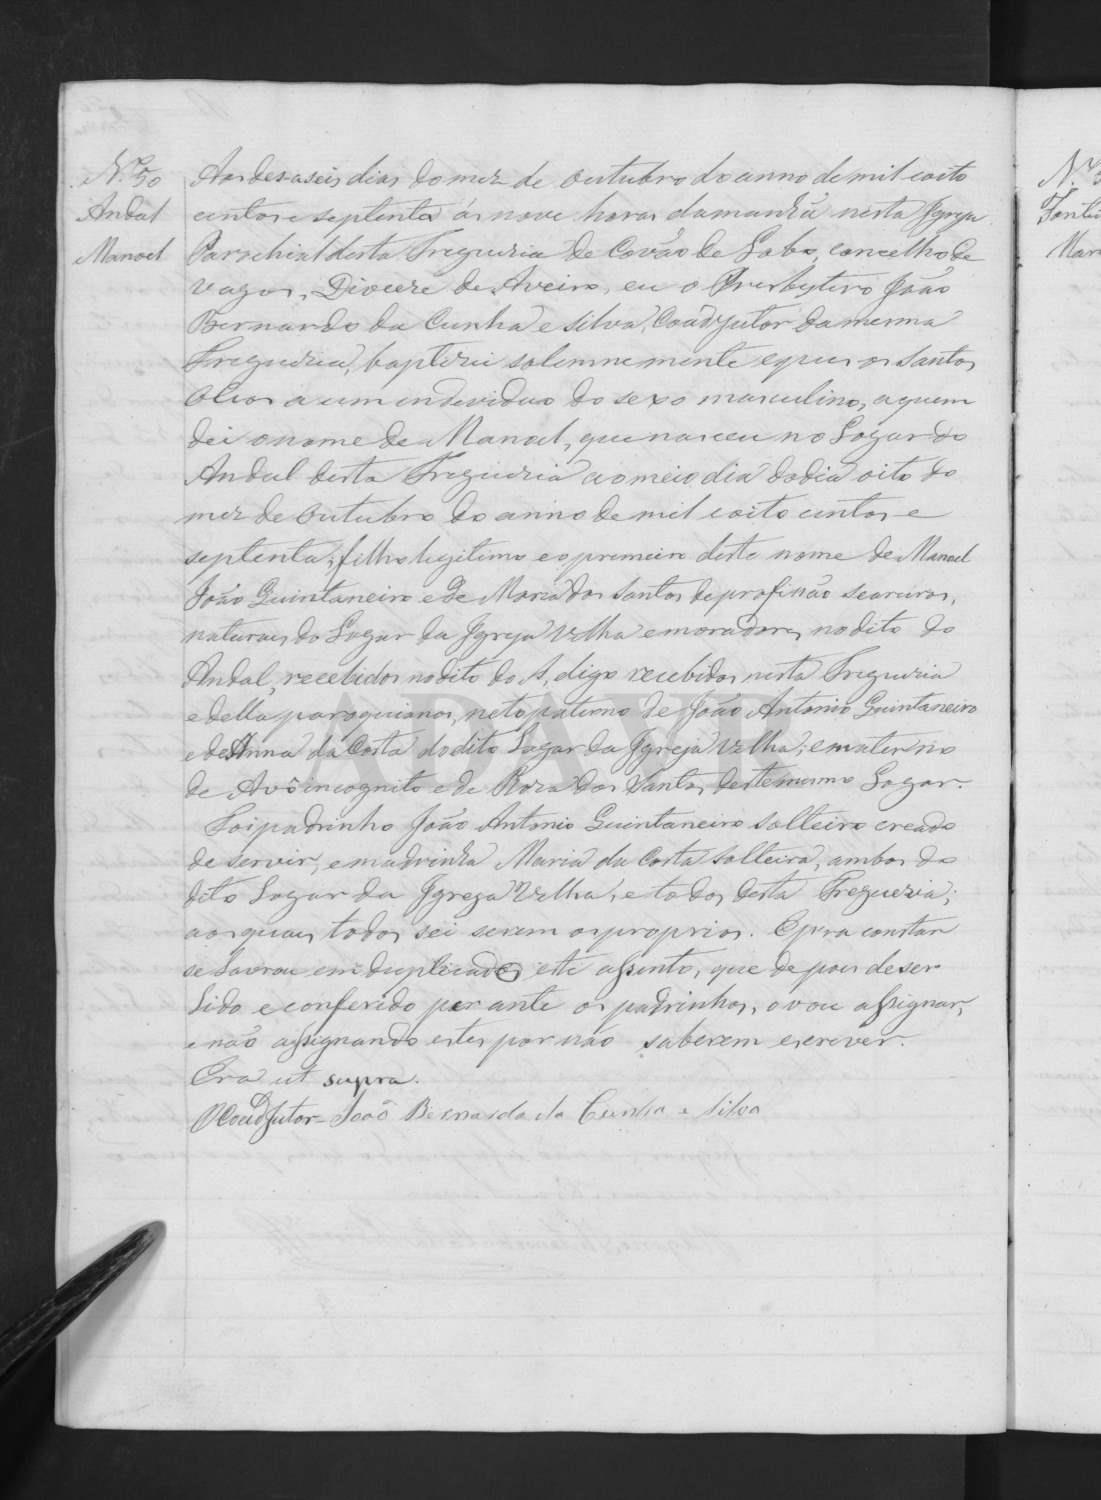 N.º 50
Andal
Manoel
Aos desaseis dias do mez de Outubro do anno de mil coito
centos e septenta ás nove horas da manhã nesta Igreja
Parochial desta Freguezia de Covão de Lobo, concelho de
Vagos, Diocese de Aveiro, eu o Presbytero João
Bernardo da Cunha e Silva, Coadjutor da mesma
Freguezia, baptizei solemnemente e puz os Santos
Oleos a um endeviduo do sexo masculino, a quem
dei o nome de Manoel, que nasceu no Logar do
Andal desta Freguezia ao meio dia do dia oito do
mez de Outubro do anno de mil coito centos e
septenta; filho legitimo e o premeiro deste nome de Manoel
João Quintaneiro e de Maria dos Santos de profissão seareiros,
naturaes do Logar da Igreja Velha e moradores no dito do
Andal, recebidos no dito do A, digo recebidos nesta Freguezia
e della paroquianos, neto paterno de João Antonio Quintaneiro
e de Anna da Costa do dito Logar da Igreja Velha; e materno
de Avô incognito e de Roza dos Santos, deste mesmo Logar.
Foi padrinho João Antonio Quintaneiro solteiro creado
de servir, e madrinha Maria da Costa solteira, ambos do
dito Logar da Igreja Velha, e todos desta Freguezia;
aos quaes todos sei serem os proprios. E pra constar
se lavrou em duplicado este assento, que depois de ser
lido e conferido perante os padrinhos, o vou assignar,
e não assignando estes por não saberem escrever.
Era ut supra.
O Coadjutor João Bernardo da Cunha e Silva
ADAVR
N.º 5